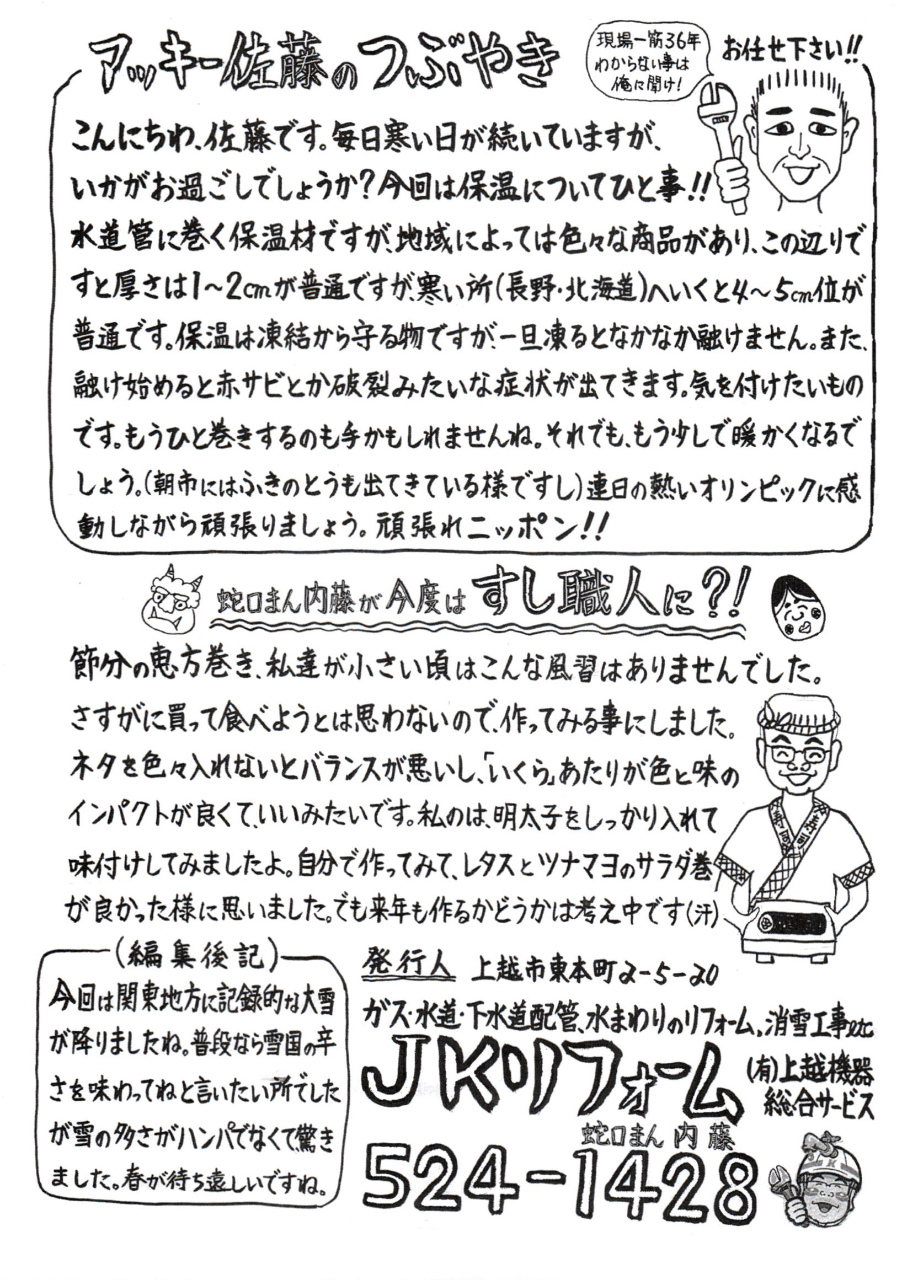 アッキー佐藤のつぶやき
現場一筋36年
わからない事は
俺に聞け!
お任せ下さい!!
こんにちわ、佐藤です。毎日寒い日が続いていますが、
いかがお過ごしでしょうか?今回は保温についてひと事!!
水道管に巻く保温材ですが、地域によっては色々な商品があり、この辺りで
すと厚さは1~2cmが普通ですが、寒い所(長野・北海道)へいくと4~5cm位が
普通です。保温は凍結から守る物ですが、一旦凍るとなかなか融けません。また、
融け始めると赤サビとか破裂みたいな症状が出てきます。気を付けたいもの
です。もうひと巻きするのも手かもしれませんね。それでも、もう少しで暖かくなるで
しょう。(朝市にはふきのとうも出てきている様ですし)連日の熱いオリンピックに感
動しながら頑張りましょう。頑張れニッポン!!
蛇口まん内藤が今度はすし職人に?!
節分の恵方巻き、私達が小さい頃はこんな風習はありませんでした。
さすがに買って食べようとは思わないので、作ってみる事にしました。
ネタを色々入れないとバランスが悪いし、「いくら」あたりが色と味の
インパクトが良くて、いいみたいです。私のは、明太子をしっかり入れて
味付けしてみましたよ。自分で作ってみて、レタスとツナマヨのサラダ巻
が良かった様に思いました。でも来年も作るかどうかは考え中です(汗)
寿司
寿司
(編集後記)
今回は関東地方に記録的な大雪
が降りましたね。普段なら雪国の辛
さを味わってねと言いたい所でした
が雪の多さがハンパでなくて驚き
ました。春が待ち遠しいですね。
発行人 上越市東本町2-5-20
ガス・水道・下水道配管、水まわりのリフォーム、消雪工事etc
JKリフォーム
(有)上越機器
総合サービス
蛇口まん 内藤
524-1428